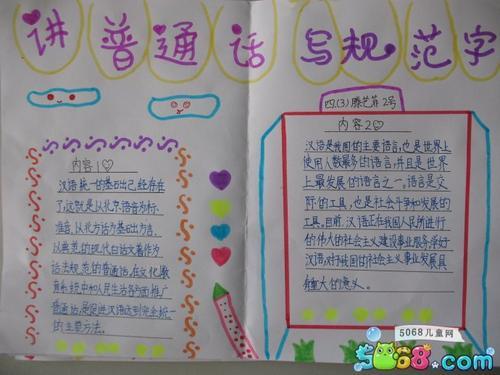 讲普通话 写规范字
内容1
汉语统一的基石出己经存在
了,这就是从北京语音为标
准音,以北方话为基础出方言,
以典范的现代白话文著作为
语法规范的普通话,在文化教
育系统中和人民生活各方面推广
普通话,是促进汉语达到完全统一
的主要方法。
四(3)滕艺苒2号
内容2
汉语是我国的主要语言,也是世界上
使用人数最多的语言,并且是世界
上最发展的语言之一。语言是交
际的工具,也是社会斗争和发展的
工具。目前,汉语正在为我国人民所进行
的伟大的社会主义建设事业服务。学好
汉语,对我国的社会主义事业发展具
有重大的意义。
5068儿童网
5068.com